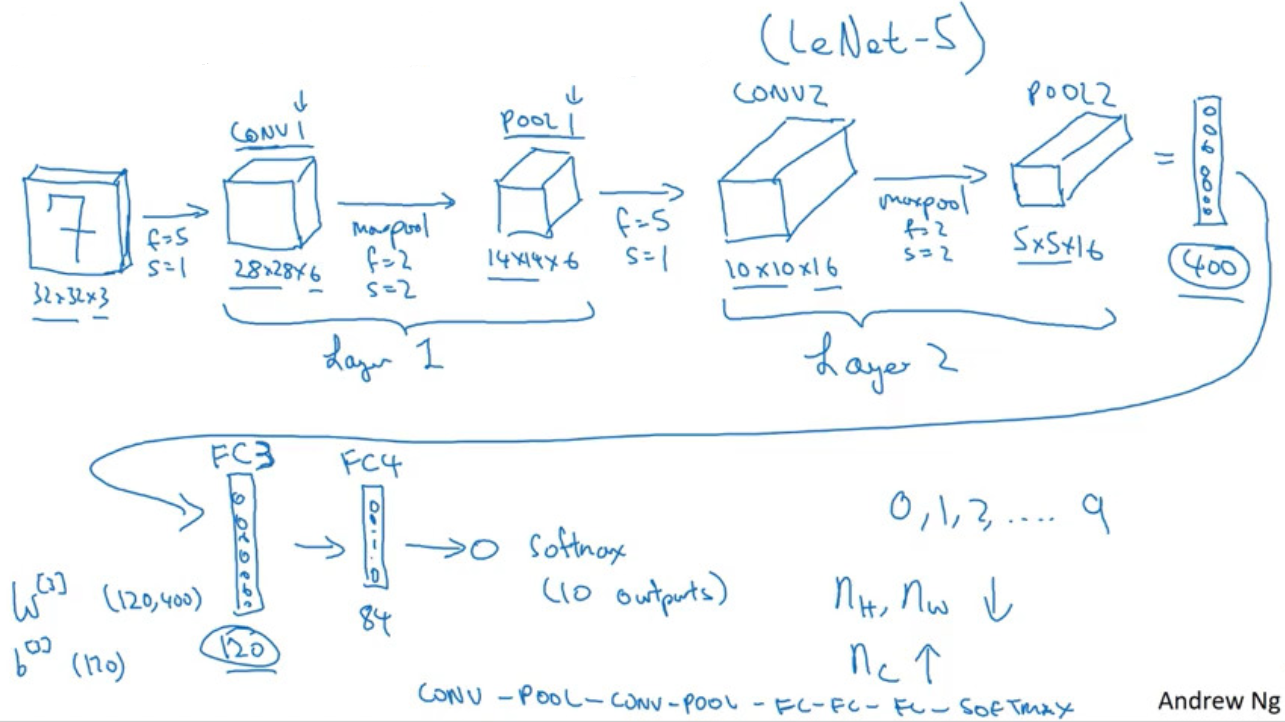 (LeNet-5)
CONV1
POOL1
CONV2
POOL2
7
f=5
s=1
maxpool
f=2
s=2
f=5
s=1
maxpool
f=2
s=2
=
32×32×3
28×28×6
14×14×6
10×10×16
5×5×16
400
Layer 1
Layer 2
FC3
FC4
0,1,2,.... 9
softmax
(10 outputs)
W[3] (120,400)
b[3] (120)
120
84
nH, nW ↓
nC ↑
CONV-POOL-CONV-POOL-FC-FC-FC-SOFTMAX
Andrew Ng